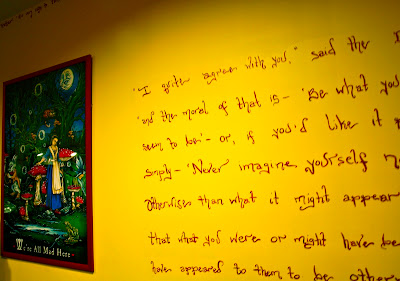 "I quite agree with you," said the
'and the moral of that is— 'Be what you
seem to be'— or, if you'd like it
simply— 'Never imagine yourself
otherwise than what it might appear
that what you were or might have
have appeared to them to be
We're All Mad Here